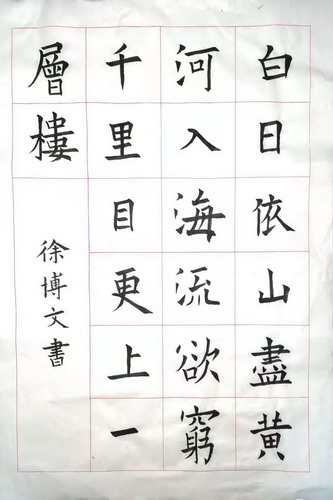 白日依山盡黃
河入海流欲窮
千里目更上一
層樓
徐博文書